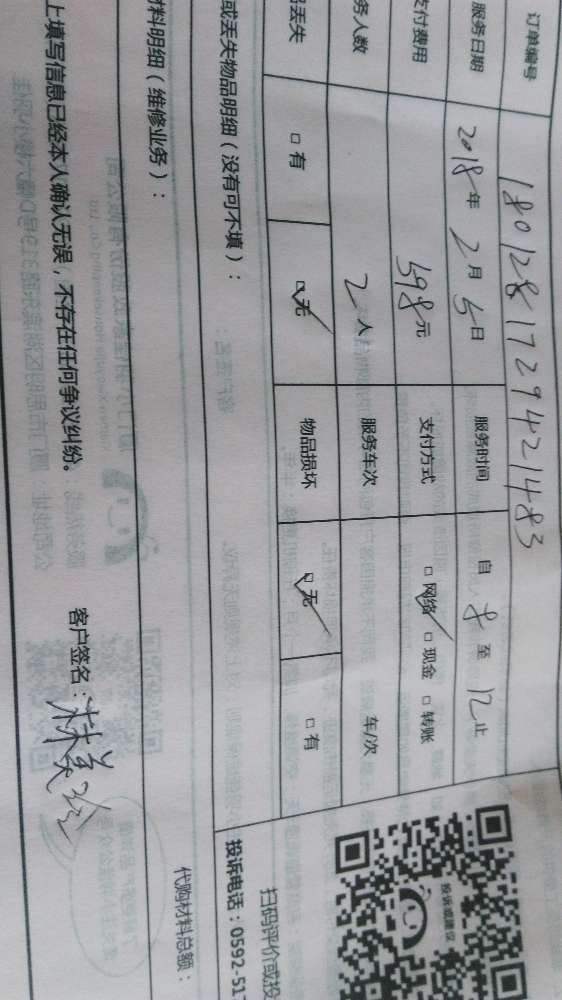 订单编号 1801281729421483
服务日期 2018年2月5日 服务时间 自 8 至 12 止
支付费用 598元 支付方式 □网络 □现金 □转账
务人数 2人 服务车次 车/次
丢失 □有 □无 物品损坏 □无 □有
或丢失物品明细（没有可不填）：
材料明细（维修业务）：
代购材料总额：
上填写信息已经本人确认无误，不存在任何争议纠纷。
客户签名：林美
投诉或建议
扫码评价或投
投诉电话：0592-517